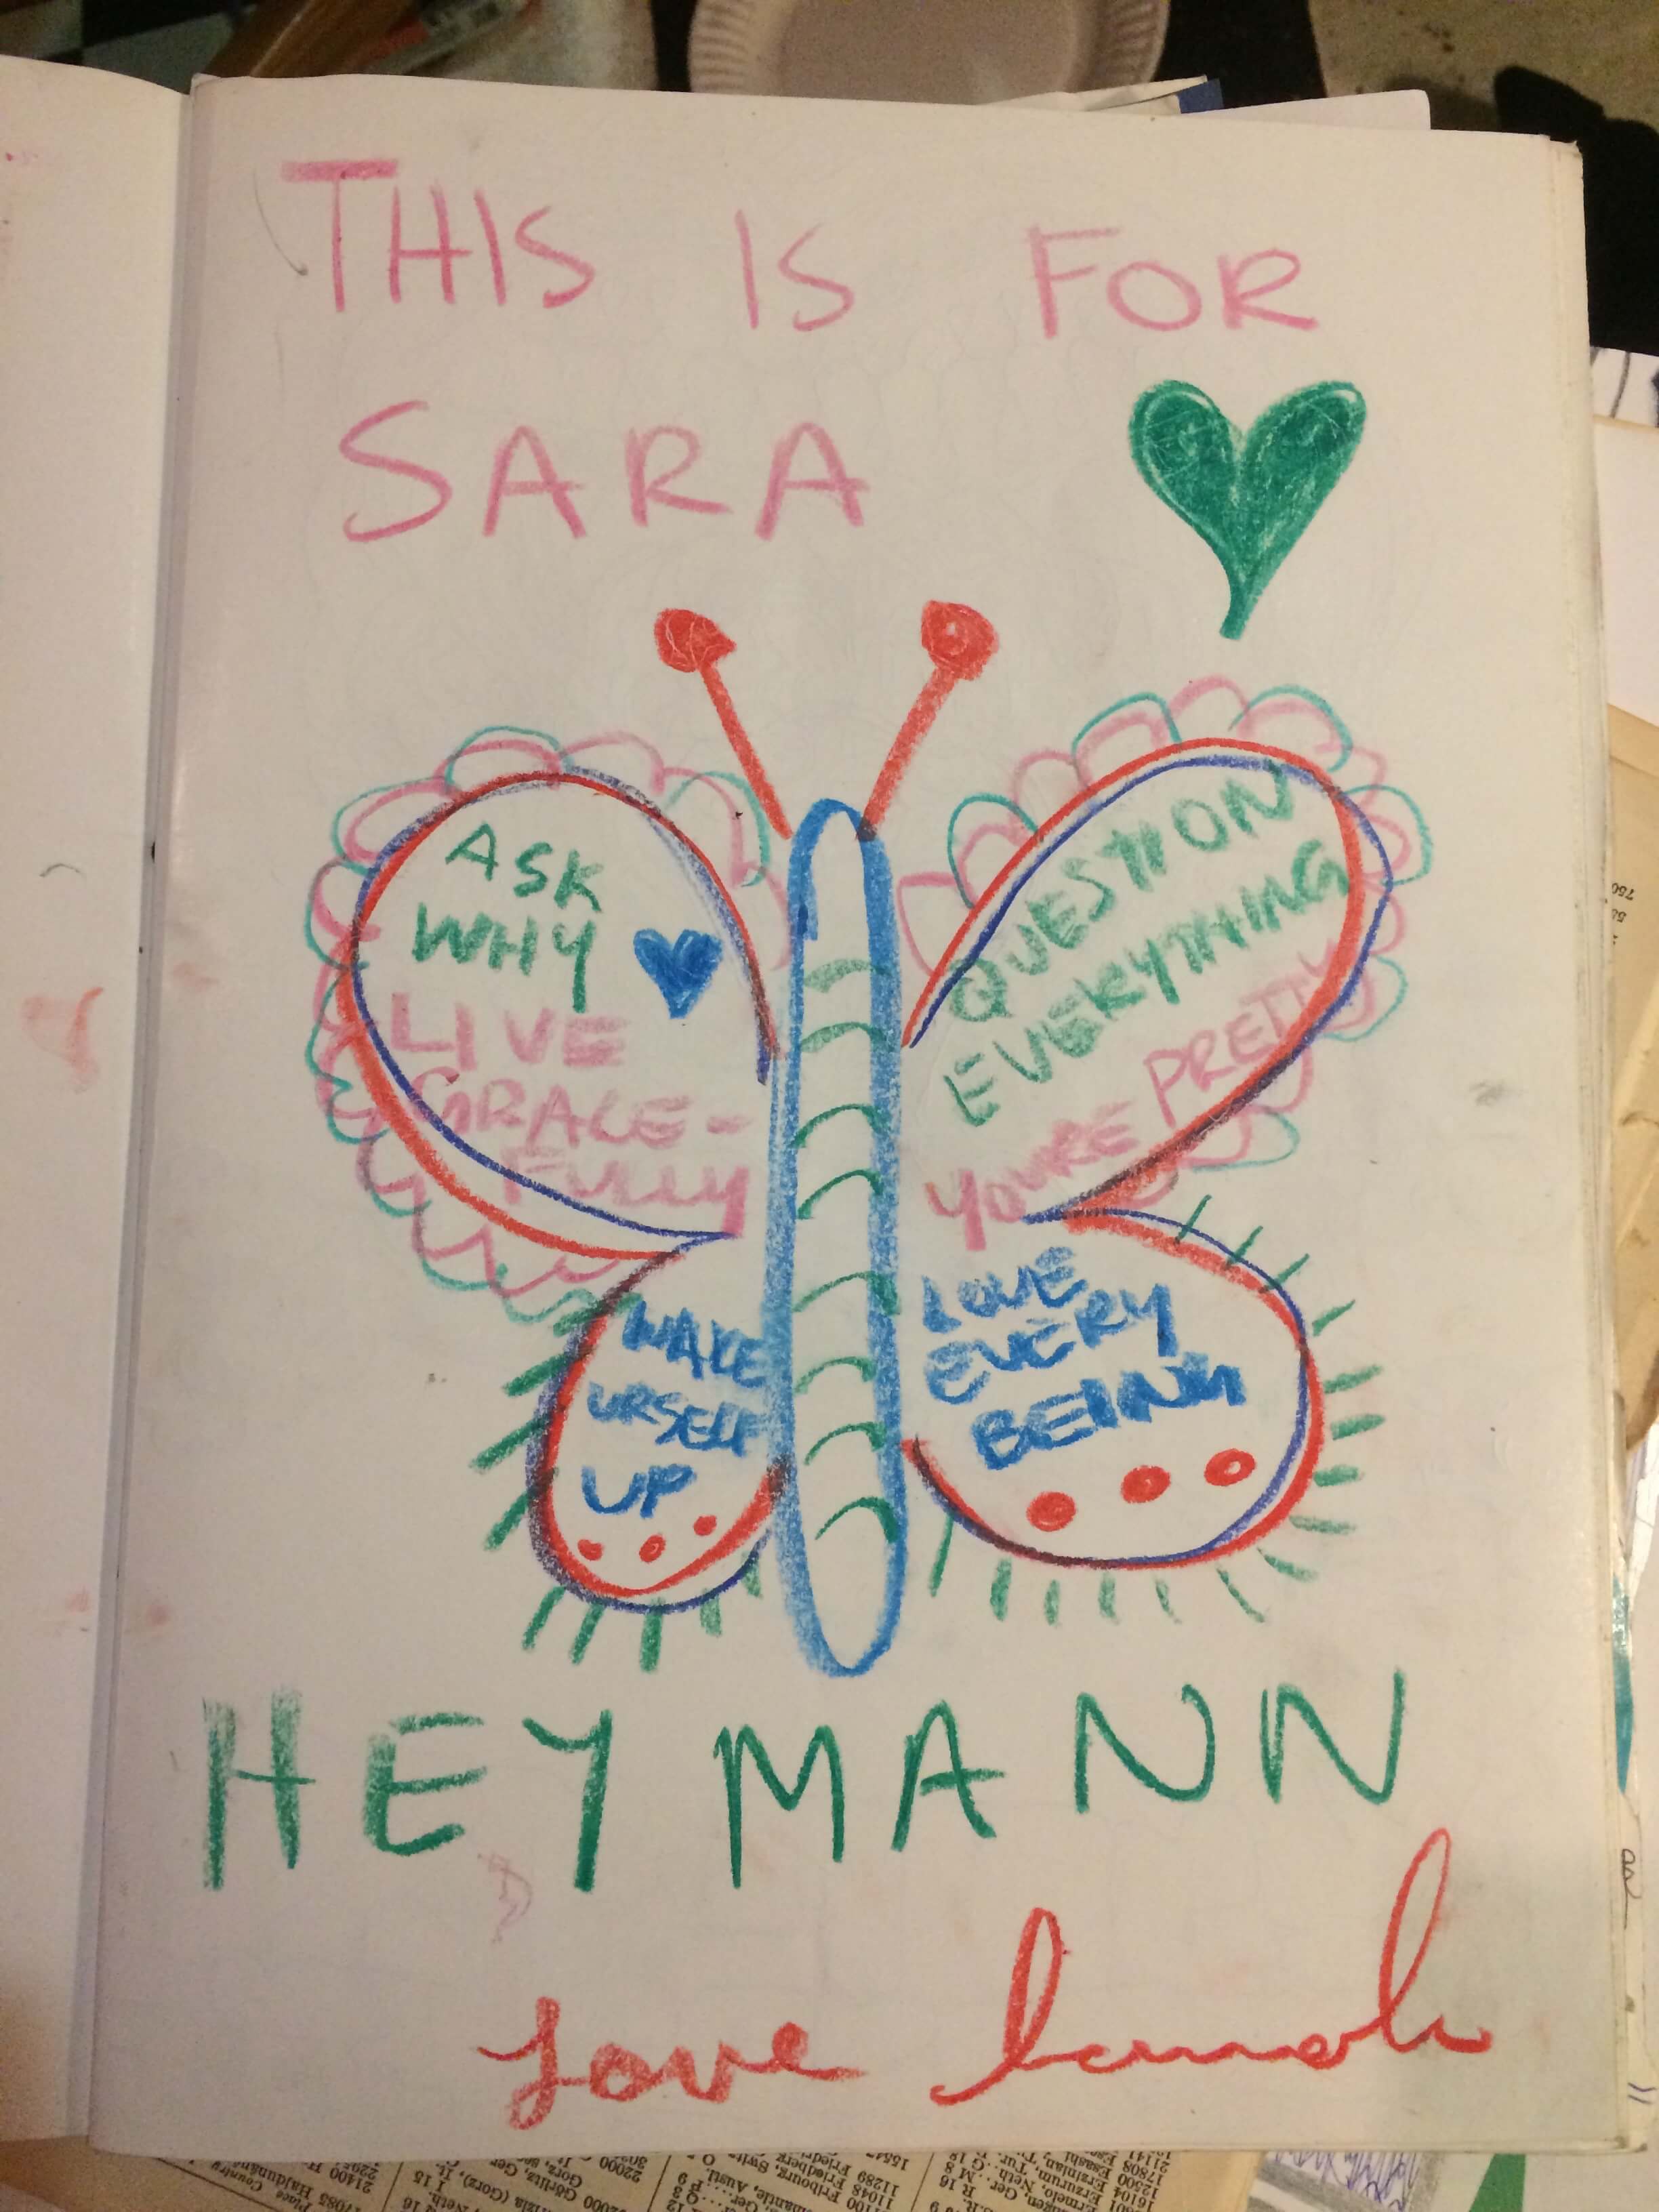 THIS IS FOR
SARA
ASK
WHY
LIVE
GRACE-
FULLY
QUESTION
EVERYTHING
YOURE PRETTY
WAKE
URSELF
UP
LOVE
EVERY
BEING
HEYMANN
love